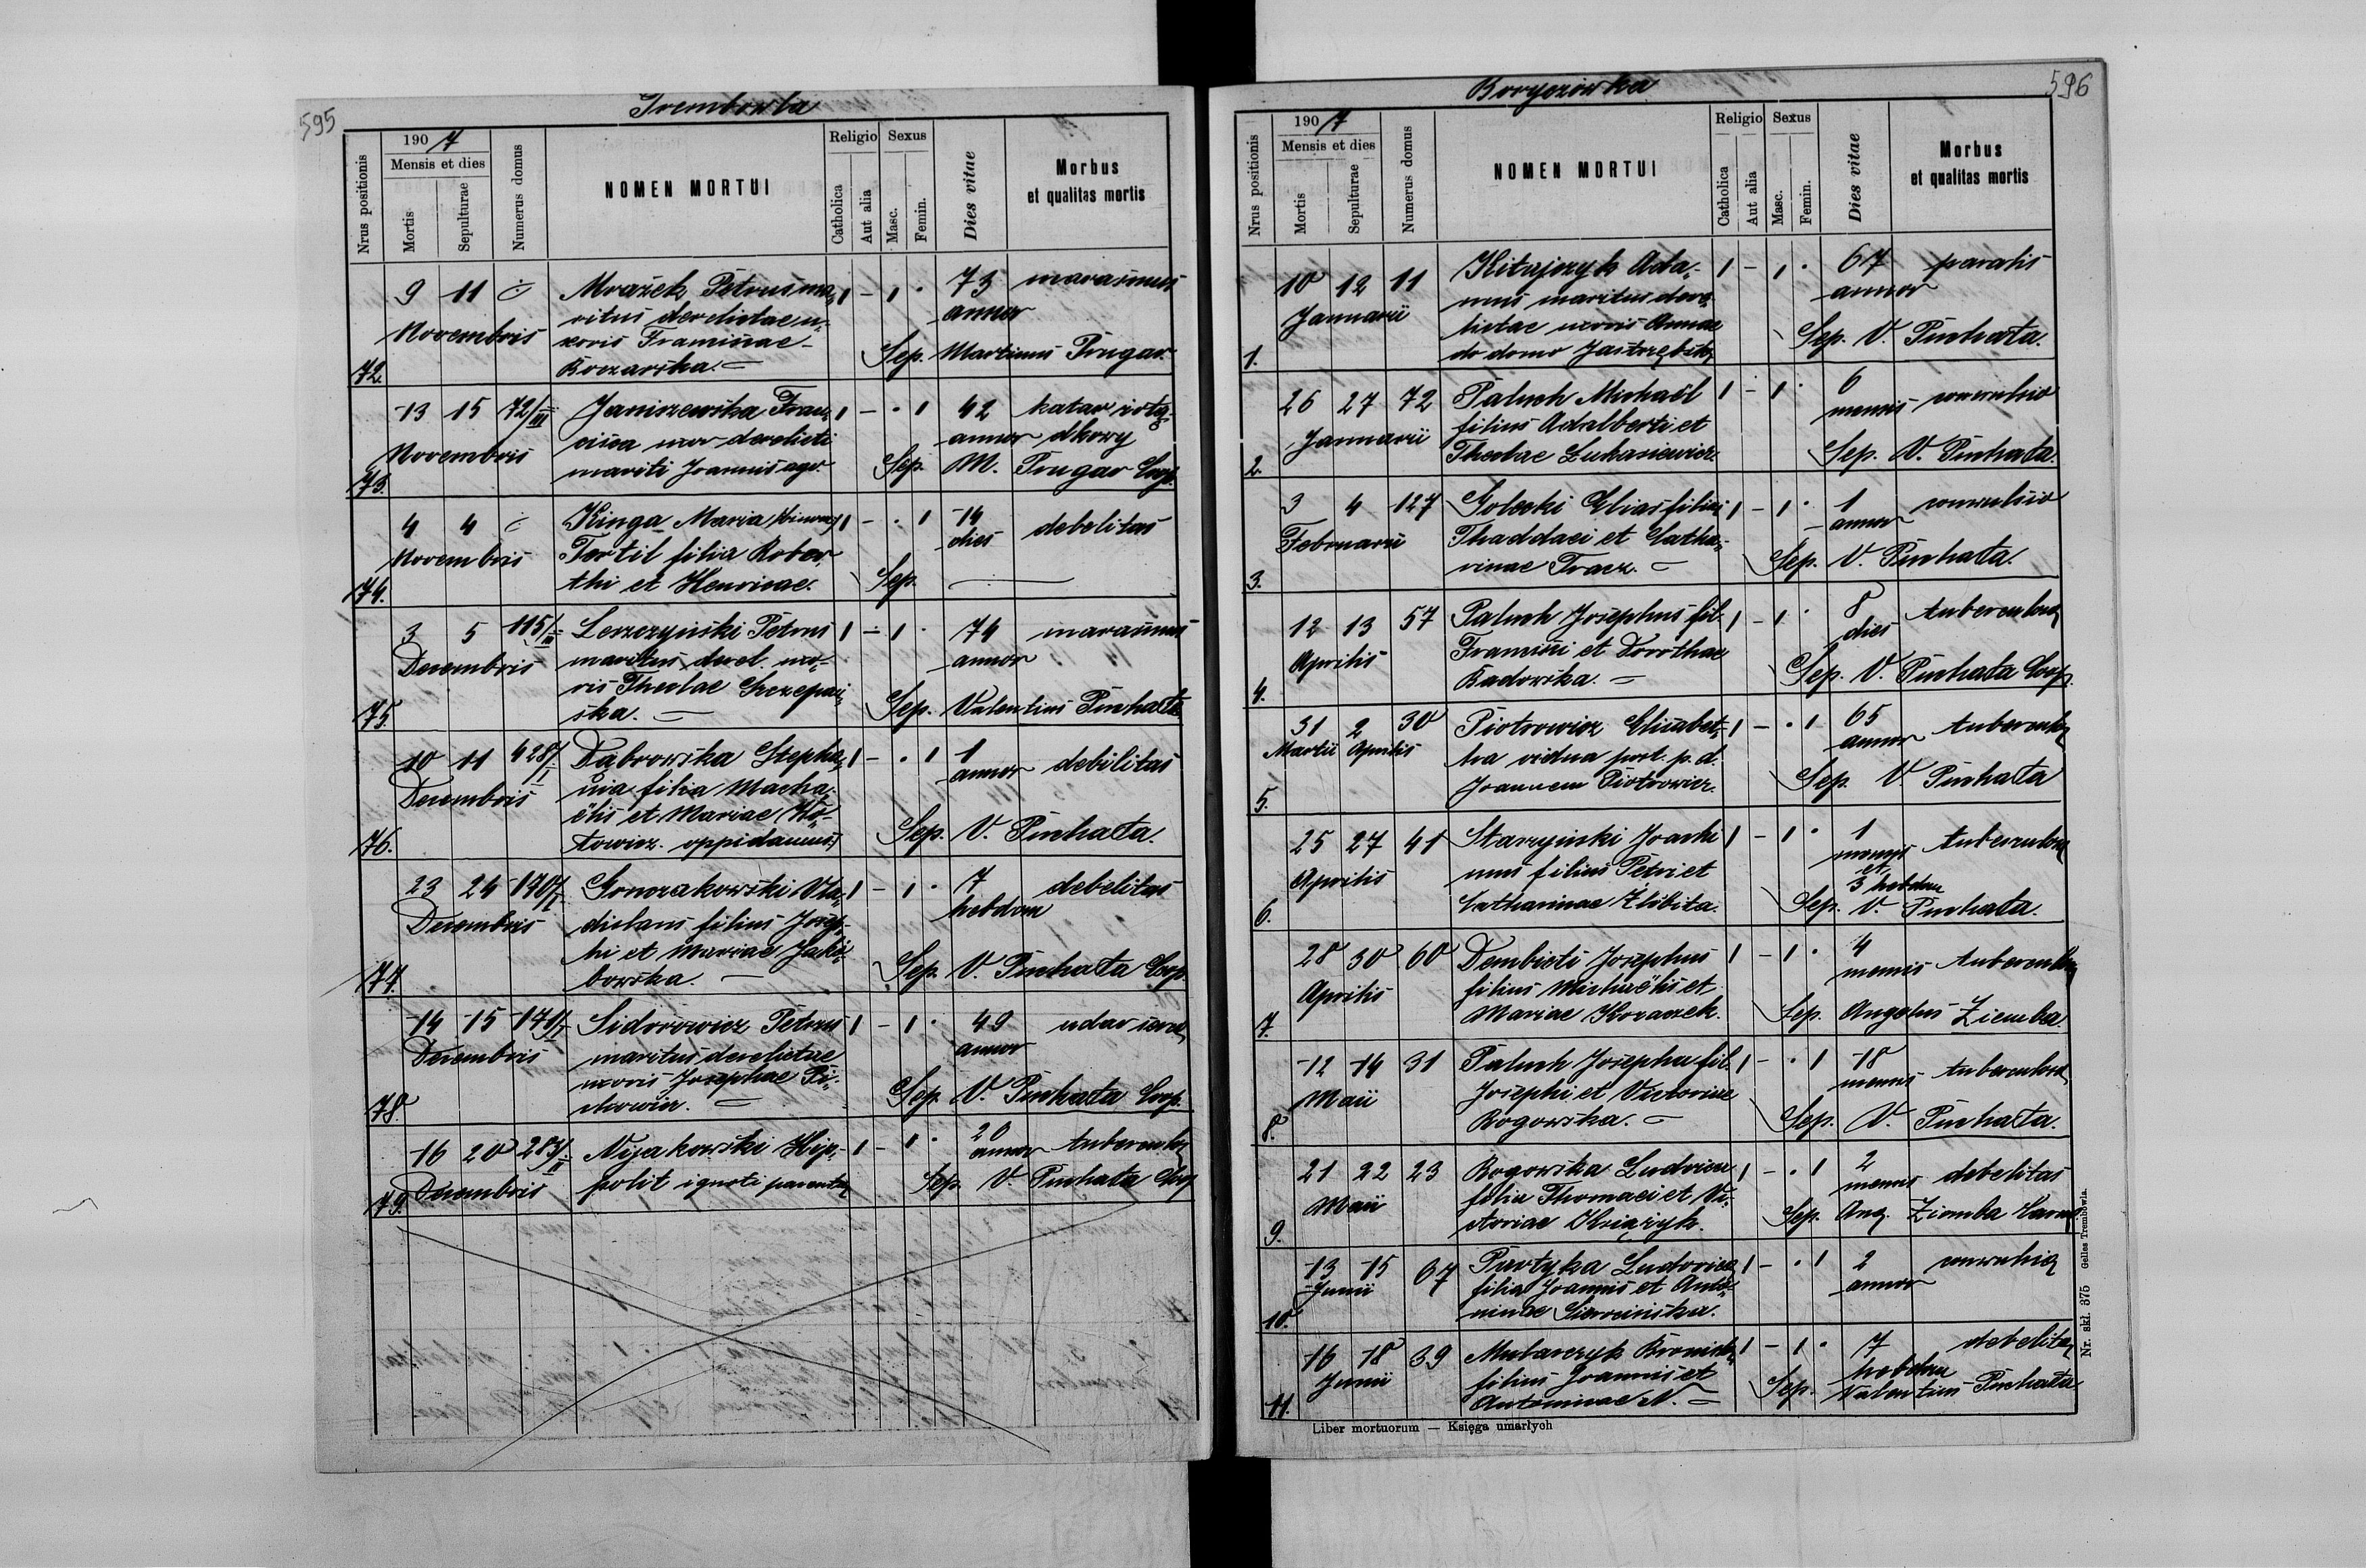 595
Trembowla
Nrus positionis
1907
Mensis et dies
Mortis
Sepulturae
Numerus domus
NOMEN MORTUI
Religio
Catholica
Aut alia
Sexus
Masc.
Femin.
Dies vitae
Morbus
et qualitas mortis
72.
9 11
Novembris
Mrażek Petrus ma,
ritus derelictae u,
xoris Franciscae
1 - 1 ·
73
annor
marasmus
Sep. Martinus Prugar
73.
13 15 72/III
Novembris
Janiszewska Fran,
cisca uxor derelicti
mariti Joannis agr
1 - · 1
42
annor
katar żołą,
dkowy
Sep. M. Prugar Coop.
74.
4 4
Novembris
Kinga Maria
Tertil filia Rober,
thi et Henricae.
1 - · 1
14
dies
debelitas
Sep.
75.
3 5 115/III
Decembris
Leszczyński Petrus
maritus derel. uxo,
ris Theclae Szczepań,
ska.
1 - 1 ·
74
annor
marasmus
Sep. Valentius Puchata
76.
10 11 428/I
Decembris
Dąbrowska Stepha,
nia filia Macha,
ëlis et Mariae Wo,
towicz. oppidanus
1 - · 1
1
annor
debilitas
Sep. V. Puchata.
77.
23 24 170/I
Decembris
Gonczakowski Vla,
dislaus filius Josep,
hi et Mariae Jakó,
bowska.
1 - 1 ·
7
hebdom
debelitas
Sep. V. Puchata Coop
78.
14 15 170/I
Decembris
Sidorowicz Petrus
maritus derelictae
uxoris Josephae Pi,
chowicz.
1 - 1 ·
49
annor
udar serca
Sep. V. Puchata Coop.
79.
16 20 287/II
Decembris
Nijakowski Hip,
polit ignoti parentes
1 - 1 ·
20
annor
tuberculos
Sep. V. Puchata Coop
596
Boryczówka
Nrus positionis
1907
Mensis et dies
Mortis
Sepulturae
Numerus domus
NOMEN MORTUI
Religio
Catholica
Aut alia
Sexus
Masc.
Femin.
Dies vitae
Morbus
et qualitas mortis
1.
10 12 11
Januarii
Kitajczyk Ada,
mus maritus dere,
lictae uxoris Annae
de domo Jastrzębska
1 - 1 ·
67
annor
paralis
Sep. V. Puchata.
2.
26 27 72
Januarii
Paluch Michaël
filius Adalberti et
Theclae Lukasiewicz.
1 - 1 ·
6
mensis
convulsio
Sep. V. Puchata.
3.
3 4 127
Februarii
Golecki Elias filius
Thaddaei et Catha,
rinae Tracz.
1 - 1 ·
1
annor
convulsio
Sep. V. Puchata.
4.
12 13 57
Aprilis
Paluch Josephus fil.
Francisci et Dorothae
Badowska.
1 - 1 ·
8
dies
tuberculos
Sep. V. Puchata Coop.
5.
31 2 30
Martii Aprilis
Piotrowicz Elisabet,
ha vidua post. p. d.
Joannem Piotrowicz.
1 - · 1
65
annor
tubercul
Sep. V. Puchata
6.
25 27 41
Aprilis
Starzyński Joachi
mus filius Petri et
Catharinae Żłobita.
1 - 1 ·
1
mensis
et
3 hebdom
tuberculos
Sep. V. Puchata.
7.
28 30 60
Aprilis
Dembicti Josephus
filius Michaëlis et
Mariae Kozaczek.
1 - 1 ·
4
mensis
tuberculos
Sep. Angelus Ziemba
8.
12 14 31
Maii
Paluch Josepha fil.
Josephi et Victoriae
Rogowska.
1 - · 1
18
mensis
tuberculos
Sep. V. Puchata.
9.
21 22 23
Maii
Rogowska Ludovica
filia Thomaei et Vi,
ctoriae Książyk.
1 - · 1
2
mensis
debelitas
Sep. Ang. Ziemba
10.
13 15 67
Junii
Partyka Ludovica
filia Joannis et Anto,
ninae
1 - · 1
2
annor
convulsio
11.
16 18 39
Junii
Mularczyk Bronisl,
filius Joannis et
Antoninae N.
1 - 1 ·
7
hebdom
debelitas
Sep. Valentius Puchata
Liber mortuorum — Księga umarłych
Nr. skł. 375 Gelles Trembowla.